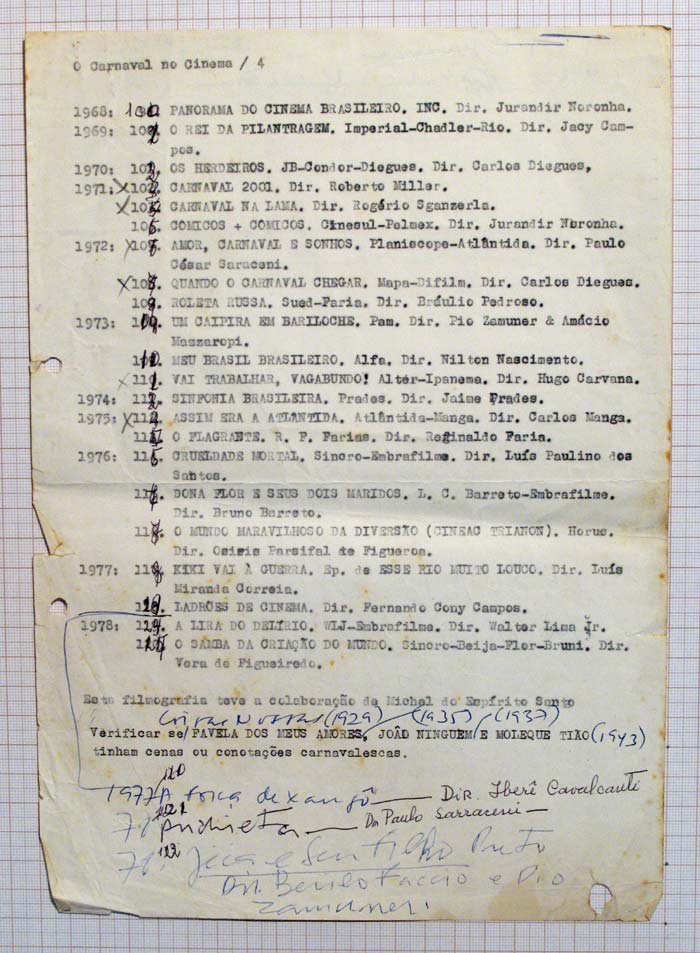 O Carnaval no Cinema / 4
1968: 100. PANORAMA DO CINEMA BRASILEIRO. INC. Dir. Jurandir Noronha.
1969: 102. O REI DA PILANTRAGEM. Imperial-Chadler-Rio. Dir. Jacy Cam-
pos.
1970: 103. OS HERDEIROS. JB-Condor-Diegues. Dir. Carlos Diegues,
1971: X CARNAVAL 2001. Dir. Roberto Miller.
X CARNAVAL NA LAMA. Dir. Rogério Sganzerla.
CÔMICOS + CÔMICOS. Cinesul-Pelmex. Dir. Jurandir Noronha.
1972: X AMOR, CARNAVAL E SONHOS. Planiscope-Atlântida. Dir. Paulo
César Saraceni.
X QUANDO O CARNAVAL CHEGAR. Mapa-Difilm. Dir. Carlos Diegues.
ROLETA RUSSA. Sued-Faria. Dir. Bráulio Pedroso.
1973: UM CAIPIRA EM BARILOCHE. Pam. Dir. Pio Zamuner & Amácio
Mazzaropi.
MEU BRASIL BRASILEIRO. Alfa. Dir. Nilton Nascimento.
X VAI TRABALHAR, VAGABUNDO! Alter-Ipanema. Dir. Hugo Carvana.
1974: SINFONIA BRASILEIRA. Prades. Dir. Jaime Prades.
1975: X ASSIM ERA A ATLÂNTIDA. Atlântida-Manga. Dir. Carlos Manga.
O FLAGRANTE. R. F. Farias. Dir. Reginaldo Faria.
1976: CRUELDADE MORTAL. Sincro-Embrafilme. Dir. Luís Paulino dos
Santos.
DONA FLOR E SEUS DOIS MARIDOS. L. C. Barreto-Embrafilme.
Dir. Bruno Barreto.
O MUNDO MARAVILHOSO DA DIVERSÃO (CINEAC TRIANON). Horus.
Dir. Osiris Parsifal de Figueroa.
1977: KIKI VAI À GUERRA. Ep. de ESSE RIO MUITO LOUCO. Dir. Luís
Miranda Correia.
LADRÕES DE CINEMA. Dir. Fernando Cony Campos.
1978: A LIRA DO DELÍRIO. WLJ-Embrafilme. Dir. Walter Lima Jr.
O SAMBA DA CRIAÇÃO DO MUNDO. Sincro-Beija-Flor-Bruni. Dir.
Vera de Figueiredo.
Esta filmografia teve a colaboração de Michel do Espírito Santo
(1929) (1935) (1937)
Verificar se FAVELA DOS MEUS AMORES, JOÃO NINGUÉM E MOLEQUE TIÃO (1943)
tinham cenas ou conotações carnavalescas.
120
1977 A força de xangô — Dir. Iberê Cavalcanti
121 Anchieta — Dir Paulo Sarraceni —
122 Jeca e Seu Filho Preto
Dir. Berilo Faccio e Pio
Zamuneri